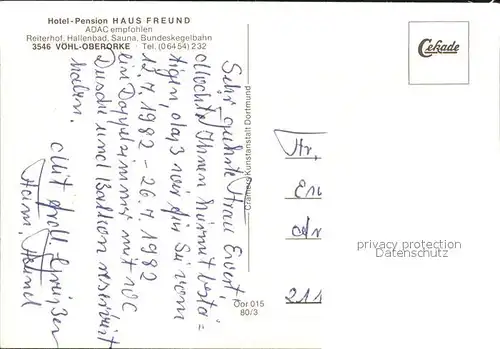 Hotel-Pension HAUS FREUND
ADAC empfohlen
Reiterhof, Hallenbad, Sauna, Bundeskegelbahn
3546 VÖHL-OBERORKE · Tel. (06454) 232
Cekade
Sehr geehrte Frau Ewert,
Möchte Ihnen hiermit bestä=
tigen, daß wir für Sie vom
12.7.1982 - 26.7.1982
ein Doppelzimmer mit WC
Dusche und Balkon reserviert
haben.
Mit frdl. Grüßen
Freund
Cramers Kunstanstalt Dortmund
Oor 015
80/3
211
privacy protection
Datenschutz